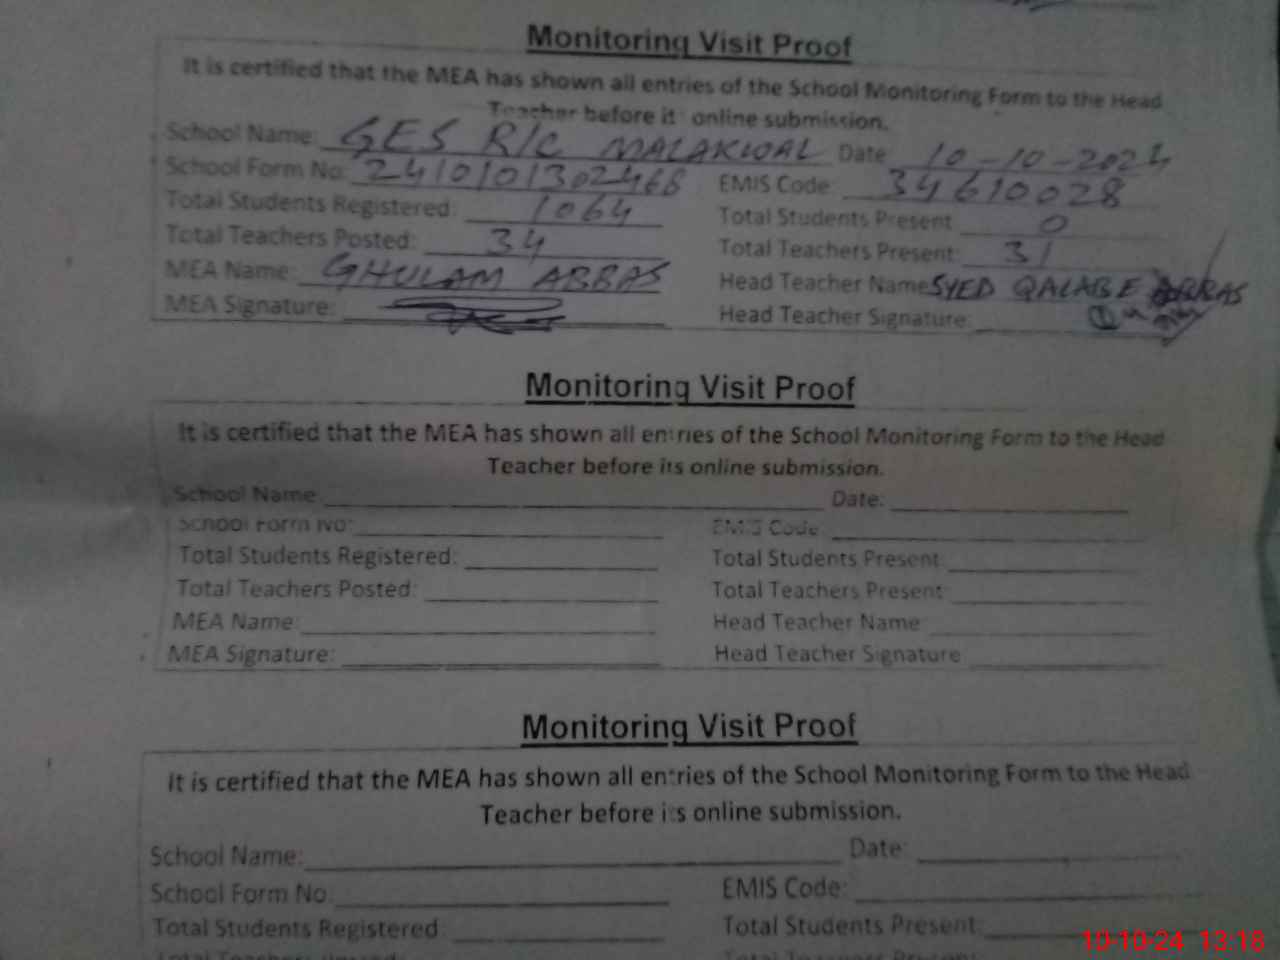 Monitoring Visit Proof
It is certified that the MEA has shown all entries of the School Monitoring Form to the Head
Teacher before it online submission.
School Name: GES R/C MALAKWAL Date 10-10-2024
School Form No: 2410101302468 EMIS Code 34610028
Total Students Registered: 1064 Total Students Present 0
Total Teachers Posted: 34 Total Teachers Present: 31
MEA Name: GHULAM ABBAS Head Teacher Name SYED QALABE ABBAS
MEA Signature: Head Teacher Signature:
Monitoring Visit Proof
It is certified that the MEA has shown all entries of the School Monitoring Form to the Head
Teacher before its online submission.
School Name Date:
School Form No: EMIS Code
Total Students Registered: Total Students Present:
Total Teachers Posted: Total Teachers Present
MEA Name: Head Teacher Name
MEA Signature: Head Teacher Signature
Monitoring Visit Proof
It is certified that the MEA has shown all entries of the School Monitoring Form to the Head
Teacher before its online submission.
School Name: Date:
School Form No. EMIS Code:
Total Students Registered: Total Students Present:
Total Teachers Total Teachers Present:
10-10-24 13:18